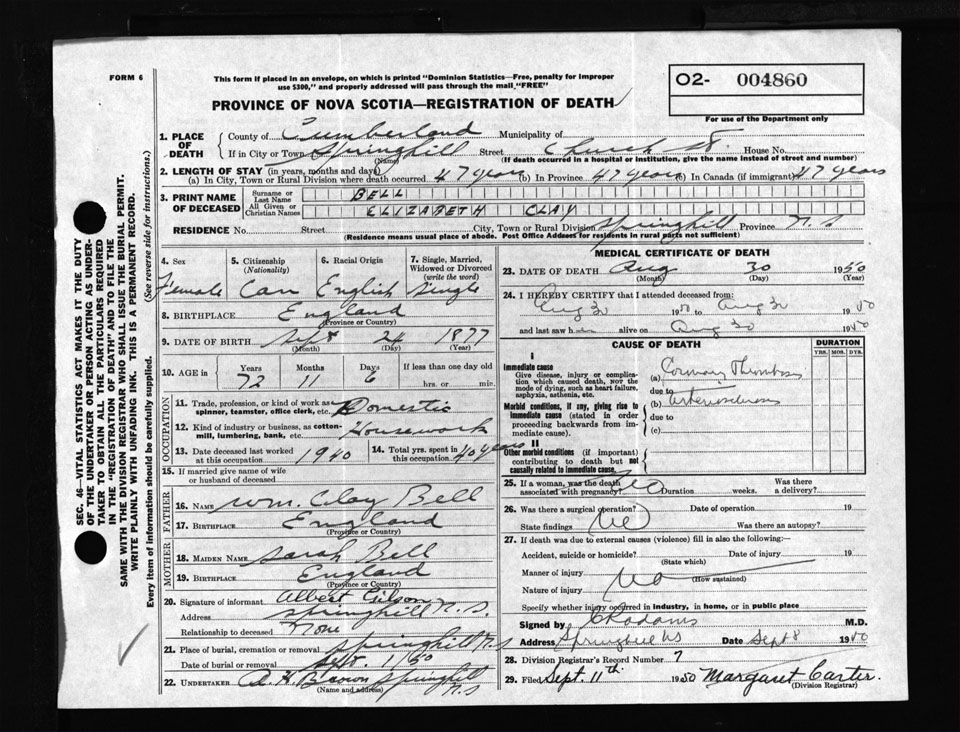 FORM 6
This form if placed in an envelope, on which is printed "Dominion Statistics—Free, penalty for improper
use $300," and properly addressed will pass through the mail "FREE"
O2- 004860
For use of the Department only
PROVINCE OF NOVA SCOTIA—REGISTRATION OF DEATH
1. PLACE OF DEATH
County of Cumberland Municipality of
If in City or Town Springhill Street Church St. House No.
(Name) (If death occurred in a hospital or institution, give the name instead of street and number)
2. LENGTH OF STAY (in years, months and days)
(a) In City, Town or Rural Division where death occurred 47 years (b) In Province 47 years (c) In Canada (if immigrant) 47 years
3. PRINT NAME OF DECEASED
Surname or Last Name BELL
All Given or Christian Names ELIZABETH CLAY
RESIDENCE No. Street City, Town or Rural Division Springhill Province N.S
(Residence means usual place of abode. Post Office Address for residents in rural parts not sufficient)
4. Sex 5. Citizenship (Nationality) 6. Racial Origin 7. Single, Married, Widowed or Divorced (write the word)
Female Can English Single
8. BIRTHPLACE England
(Province or Country)
9. DATE OF BIRTH Sept 24 1877
(Month) (Day) (Year)
10. AGE in Years Months Days If less than one day old
72 11 6 hrs. or min.
OCCUPATION
11. Trade, profession, or kind of work as spinner, teamster, office clerk, etc. Domestic
12. Kind of industry or business, as cotton-mill, lumbering, bank, etc. Housework
13. Date deceased last worked at this occupation 1940 14. Total yrs. spent in this occupation 40 years
15. If married give name of wife or husband of deceased
FATHER
16. NAME Wm. Clay Bell
17. BIRTHPLACE England
(Province or Country)
MOTHER
18. MAIDEN NAME Sarah Bell
19. BIRTHPLACE England
(Province or Country)
20. Signature of informant Albert Gilson
Address Springhill N.S.
Relationship to deceased None
21. Place of burial, cremation or removal Springhill N.S
Date of burial or removal Sept. 1/50
22. UNDERTAKER A. H. Brown Springhill N.S
(Name and address)
MEDICAL CERTIFICATE OF DEATH
23. DATE OF DEATH Aug 30 1950
(Month) (Day)
24. I HEREBY CERTIFY that I attended deceased from:
Aug 30 1950 to Aug 30 1950
and last saw h alive on Aug 30 1950
CAUSE OF DEATH DURATION
YRS. MOS. DYS.
I
Immediate cause
Give disease, injury or complication which caused death, NOT the mode of dying, such as heart failure, asphyxia, asthenia, etc.
(a) Coronary Thrombosis
due to
Morbid conditions, if any, giving rise to immediate cause (stated in order proceeding backwards from immediate cause).
(b) Arteriosclerosis
due to
(c)
II
Other morbid conditions (if important) contributing to death but not causally related to immediate cause.
25. If a woman, was the death associated with pregnancy? No Duration weeks. Was there a delivery?
26. Was there a surgical operation? No Date of operation 19
State findings Was there an autopsy?
27. If death was due to external causes (violence) fill in also the following:—
Accident, suicide or homicide? Date of injury 19
(State which)
Manner of injury No
(How sustained)
Nature of injury
Specify whether injury occurred in industry, in home, or in public place
Signed by Adams M.D.
Address Springhill NS Date Sept 8 1950
28. Division Registrar's Record Number 7
29. Filed Sept. 11th 1950 Margaret Carter.
(Division Registrar)
SEC. 46—VITAL STATISTICS ACT MAKES IT THE DUTY
OF THE UNDERTAKER OR PERSON ACTING AS UNDERTAKER
TO OBTAIN ALL THE PARTICULARS REQUIRED
IN THE "REGISTRATION OF DEATH" AND TO FILE THE
SAME WITH THE DIVISION REGISTRAR WHO SHALL ISSUE THE BURIAL PERMIT.
WRITE PLAINLY WITH UNFADING INK. THIS IS A PERMANENT RECORD.
Every item of information should be carefully supplied. (See reverse side for instructions.)